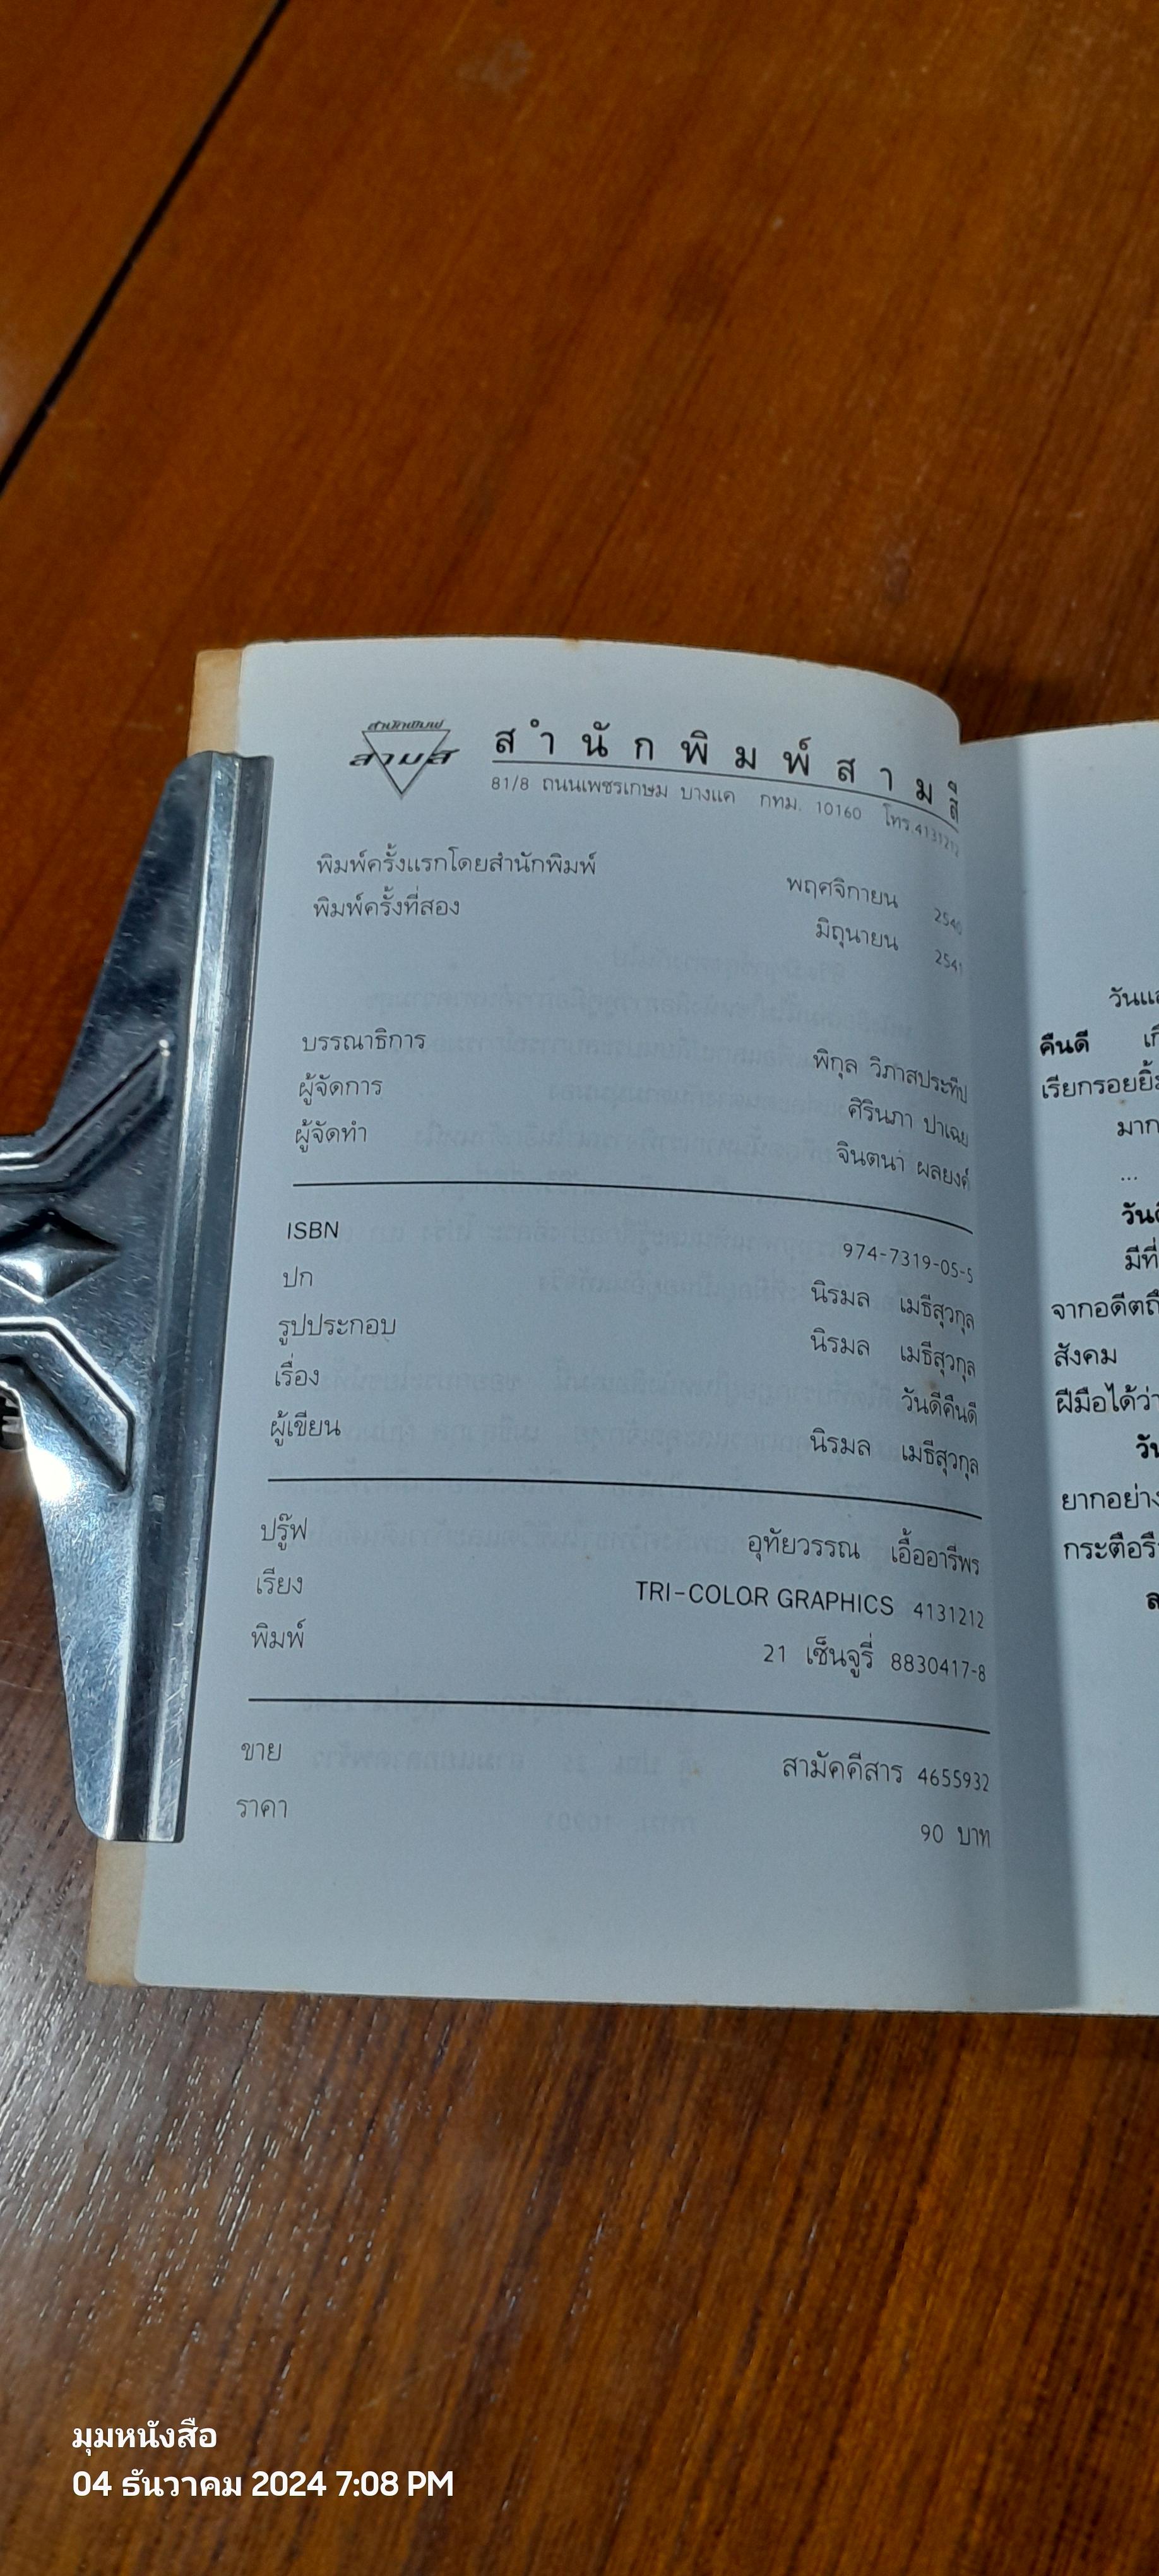 สำนักพิมพ์
สามสี
สำนักพิมพ์สามสี
81/8 ถนนเพชรเกษม บางแค กทม. 10160 โทร.4131212
พิมพ์ครั้งแรกโดยสำนักพิมพ์ พฤศจิกายน 2540
พิมพ์ครั้งที่สอง มิถุนายน 2541
บรรณาธิการ พิกุล วิภาสประทีป
ผู้จัดการ ศิรินภา ปาเฉย
ผู้จัดทำ จินตนา ผลยงค์
ISBN 974-7319-05-5
ปก นิรมล เมธีสุวกุล
รูปประกอบ นิรมล เมธีสุวกุล
เรื่อง วันดีคืนดี
ผู้เขียน นิรมล เมธีสุวกุล
ปรู๊ฟ อุทัยวรรณ เอื้ออารีพร
เรียง TRI-COLOR GRAPHICS 4131212
พิมพ์ 21 เซ็นจูรี่ 8830417-8
ขาย สามัคคีสาร 4655932
ราคา 90 บาท
คืนดี
เรียกรอยยิ้ม
มาก
...
มีที่
จากอดีตถึ
สังคม
ฝีมือได้ว่า
ยากอย่าง
มุมหนังสือ
04 ธันวาคม 2024 7:08 PM